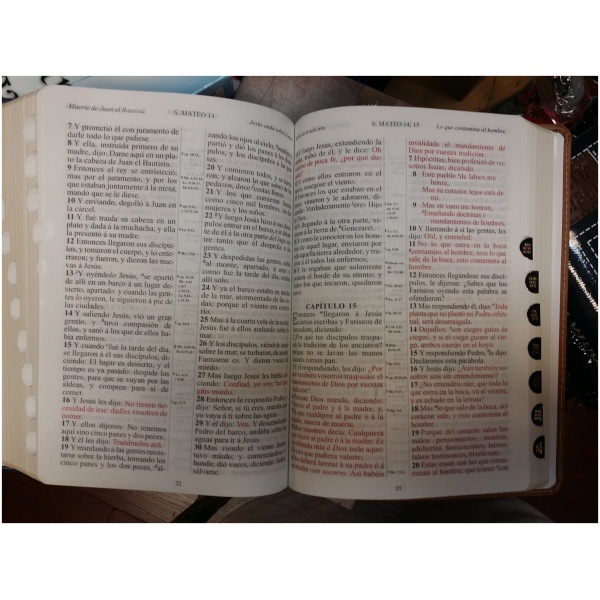 Muerte de Juan el Bautista.
S. MATEO 14
7 Y prometió él con juramento de
darle todo lo que pidiese.
8 Y ella, instruida primero de su
madre, dijo: Dame aquí en un pla-
to la cabeza de Juan el Bautista.
9 Entonces el rey se entristeció;
mas por el juramento, y por los
que estaban juntamente á la mesa,
mandó que se le diese.
10 Y enviando, degolló á Juan en
la cárcel.
11 Y fué traída su cabeza en un
plato y dada á la muchacha; y ella
la presentó á su madre.
12 Entonces llegaron sus discípu-
los, y tomaron el cuerpo, y lo ente-
rraron; y fueron, y dieron las nue-
vas á Jesús.
13 Y oyéndolo Jesús, se apartó
de allí en un barco á un lugar de-
sierto, apartado: y cuando las gen-
tes lo oyeron, le siguieron á pie de
las ciudades.
14 Y saliendo Jesús, vió un gran
gentío, y tuvo compasión de
ellos, y sanó á los que de ellos ha-
bía enfermos.
15 Y cuando fué la tarde del día,
se llegaron á él sus discípulos, di-
ciendo: El lugar es desierto, y el
tiempo es ya pasado: despide las
gentes, para que se vayan por las
aldeas, y compren para sí de
comer.
16 Y Jesús les dijo: No tienen ne-
cesidad de irse: dadles vosotros de
comer.
17 Y ellos dijeron: No tenemos
aquí sino cinco panes y dos peces.
18 Y él les dijo: Traédmelos acá.
19 Y mandando á las gentes recos-
tarse sobre la hierba, tomando los
cinco panes y los dos peces, al-
Jesús anda sobre
zando los ojos al cielo,
partió y dió los panes á los
pulos, y los discípulos á las
20 Y comieron todos, y se
taron; y alzaron lo que sobró
pedazos, doce cestas
21 Y los que comieron
como cinco mil hombres, sin
jeres y los niños.
22 Y luego Jesús hizo á sus discí-
pulos entrar en el barco, é ir
te de él á la otra parte del
tre tanto que él despedía
gentes.
23 Y despedidas las gentes,
al monte, apartado, á orar
como fué la tarde del día,
allí solo.
24 Y ya el barco estaba en medio
de la mar, atormentado de las
das; porque el viento era
25 Mas á la cuarta vela de la noche
Jesús fué á ellos andando sobre
mar.
26 Y los discípulos, viéndole andar
sobre la mar, se turbaron, diciendo:
Fantasma es. Y dieron voces de
miedo.
27 Mas luego Jesús les habló, di-
ciendo: Confiad, yo soy; no ten-
gáis miedo.
28 Entonces le respondió Pedro, y
dijo: Señor, si tú eres, manda que
yo vaya á ti sobre las aguas.
29 Y él dijo: Ven. Y descendiendo
Pedro del barco, andaba sobre las
aguas para ir á Jesús.
30 Mas viendo el viento fuerte,
tuvo miedo; y comenzándose á
hundir, dió voces, diciendo: Señor,
sálvame.
22
la tradición.
S. MATEO 14, 15
Lo que contamina al hombre.
luego Jesús, extendiendo la
trabó de él, y le dice: Oh
de poca fe, ¿por qué du-
como ellos entraron en el
sosegóse el viento.
Entonces los que estaban en el
vinieron y le adoraron, di-
Verdaderamente eres Hijo
llegando á la otra parte, vi-
la tierra de Genezaret.
como le conocieron los hom-
de aquel lugar, enviaron por
aquella tierra alrededor, y tra-
á él todos los enfermos.
Y le rogaban que solamente
el borde de su manto;
los que tocaron, quedaron
CAPÍTULO 15
llegaron á Jesús
escribas y Fariseos de
diciendo:
¿Por qué tus discípulos traspa-
la tradición de los ancianos?
no se lavan las manos
comen pan.
respondiendo, les dijo: ¿Por
también vosotros traspasáis
mandamiento de Dios por vuestra
tradición?
Porque Dios mandó, diciendo:
al padre y á la madre, y,
que maldijere al padre ó á la
muera de muerte.
Mas vosotros decís: Cualquiera
dirá al padre ó á la madre: Es
ofrenda mía á Dios todo aquello
que pudiera valerte;
No deberá honrar á su padre ó á
madre con socorro. Así habéis
invalidado el mandamiento de
Dios por vuestra tradición.
7 Hipócritas, bien profetizó de vo-
sotros Isaías, diciendo:
8 Este pueblo de labios me
honra;
Mas su corazón lejos está de
mí.
9 Mas en vano me honran,
Enseñando doctrinas y
mandamientos de hombres.
10 Y llamando á sí las gentes, les
dijo: Oíd, y entended:
11 No lo que entra en la boca
contamina al hombre; mas lo que
sale de la boca, esto contamina al
hombre.
12 Entonces llegándose sus discí-
pulos, le dijeron: ¿Sabes que los
Fariseos oyendo esta palabra se
ofendieron?
13 Mas respondiendo él, dijo: Toda
planta que no plantó mi Padre celes-
tial, será desarraigada.
14 Dejadlos: son ciegos guías de
ciegos; y si el ciego guiare al cie-
go, ambos caerán en el hoyo.
15 Y respondiendo Pedro, le dijo:
Decláranos esta parábola.
16 Y Jesús dijo: ¿Aun también vo-
sotros sois sin entendimiento?
17 ¿No entendéis aún, que todo lo
que entra en la boca, va al vientre,
y es echado en la letrina?
18 Mas lo que sale de la boca, del
corazón sale; y esto contamina al
hombre.
19 Porque del corazón salen los
malos pensamientos, muertes,
adulterios, fornicaciones, hurtos,
falsos testimonios, blasfemias.
20 Estas cosas son las que conta-
minan al hombre: que comer con
23